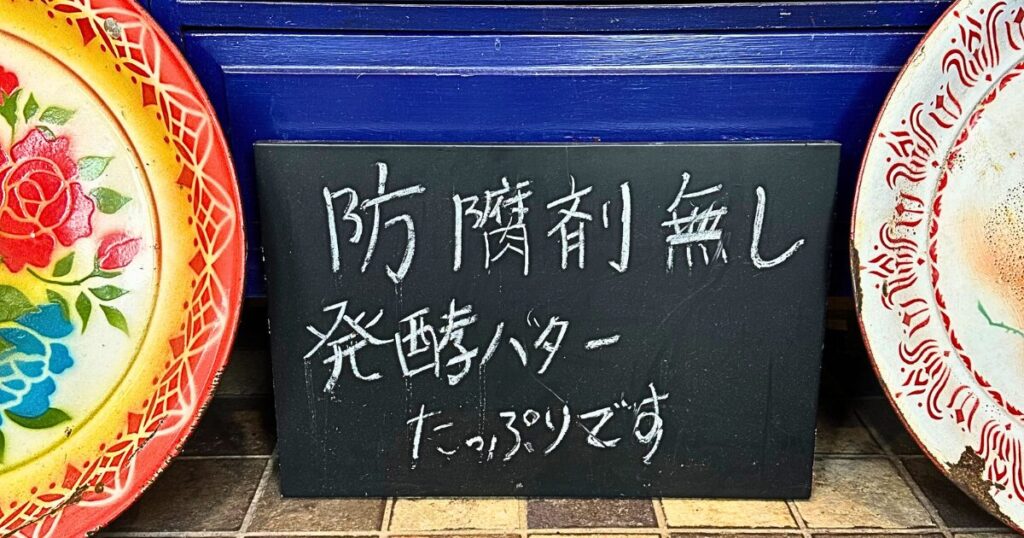 防腐剤無し
発酵バター
たっぷりです